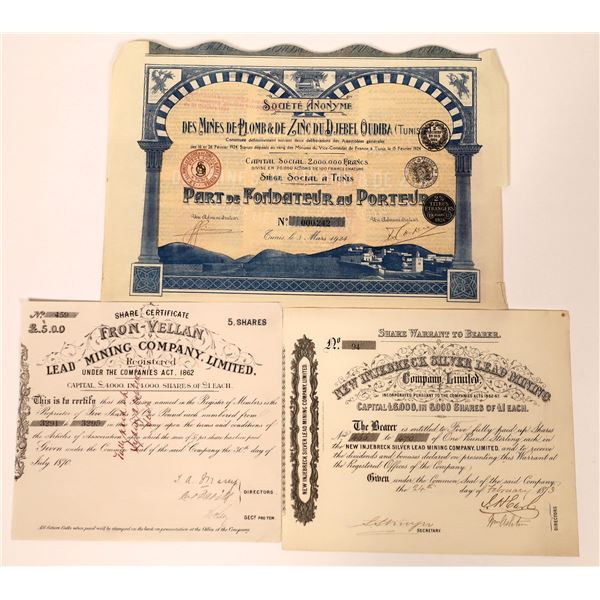 SOCIÉTÉ ANONYME
DES MINES DE PLOMB & DE ZINC DU DJEBEL OUDIBA (TUNISIE)
Constituée définitivement suivant deux délibérations des Assemblées générales
des 16 et 26 Février 1924
CAPITAL SOCIAL: 2.000.000 FRANCS
DIVISÉ EN 20.000 ACTIONS DE 100 FRANCS CHACUNE
SIÈGE SOCIAL À TUNIS
PART DE FONDATEUR AU PORTEUR
Un Administrateur
No 000,242
Un Administrateur
Tunis, le 3 Mars 1924
2%
TITRES
ETRANGERS
1924
No 459
£5.00
SHARE CERTIFICATE
5 SHARES
FRON-VELLAN
LEAD MINING COMPANY, LIMITED.
Registered
UNDER THE COMPANIES ACT. 1862
CAPITAL £4,000, IN 4,000 SHARES OF £1 EACH.
This is to certify that named in the Register of Members is the
Proprietor of Five Shares of Pound each numbered from
3291 3295 Company upon the terms and conditions of
the Articles of Association the sum of per share has been paid
Given under the Common Seal of the said Company the 30th day of
July 1870
DIRECTORS
SECY PRO TEM.
All future Calls when paid will be changed on the back on presentation at the Office of the Company.
SHARE WARRANT TO BEARER.
No 94
NEW INJEBRECK SILVER LEAD MINING
Company Limited.
INCORPORATED PURSUANT TO THE COMPANIES ACTS 1862-67
CAPITAL £6,000, IN 6,000 SHARES OF £1 EACH.
NEW INJEBRECK SILVER LEAD MINING COMPANY, LIMITED.
The Bearer is entitled to Five fully paid up Shares
of One Pound Sterling each in
the NEW INJEBRECK SILVER LEAD MINING COMPANY, LIMITED, and to receive
the dividends and bonuses declared on presenting this Warrant at
the Registered Offices of the Company.
Given under the Common Seal of the said Company
the 24th day of February 1873
SECRETARY
DIRECTORS